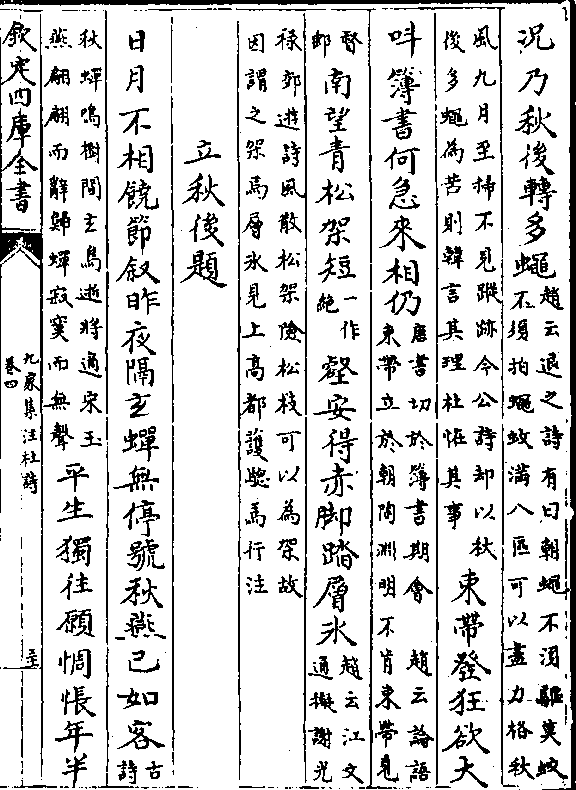 况乃秋後轉多蠅趙云退之詩有曰朝蠅不湏驅莫蚊不湏拍蠅蚊滿八區可以盡力格秋
風九月至掃不見蹤跡今公詩却以秋後多蠅為苦則韓言其理杜恠其事束帶發狂欲大
呌簿書何急來相仍唐書切於簿書期會 趙云論語束帶立於朝陶淵明不肯束帶見
督郵南望青松架短一作絶壑安得赤脚踏層氷趙云江文通擬謝光
禄郊遊詩風散松架險松枝可以為架故因謂之架焉層氷見上高都護驄馬行注
立秋後題
日月不相饒節叙昨夜隔玄蟬無停號秋燕已如客古詩
秋蟬鳴樹間玄鳥逝將適宋玉燕翩翩而辭歸蟬寂寞而無聲平生獨往願惆悵年半
欽定四庫全書
九家集注杜詩
卷四